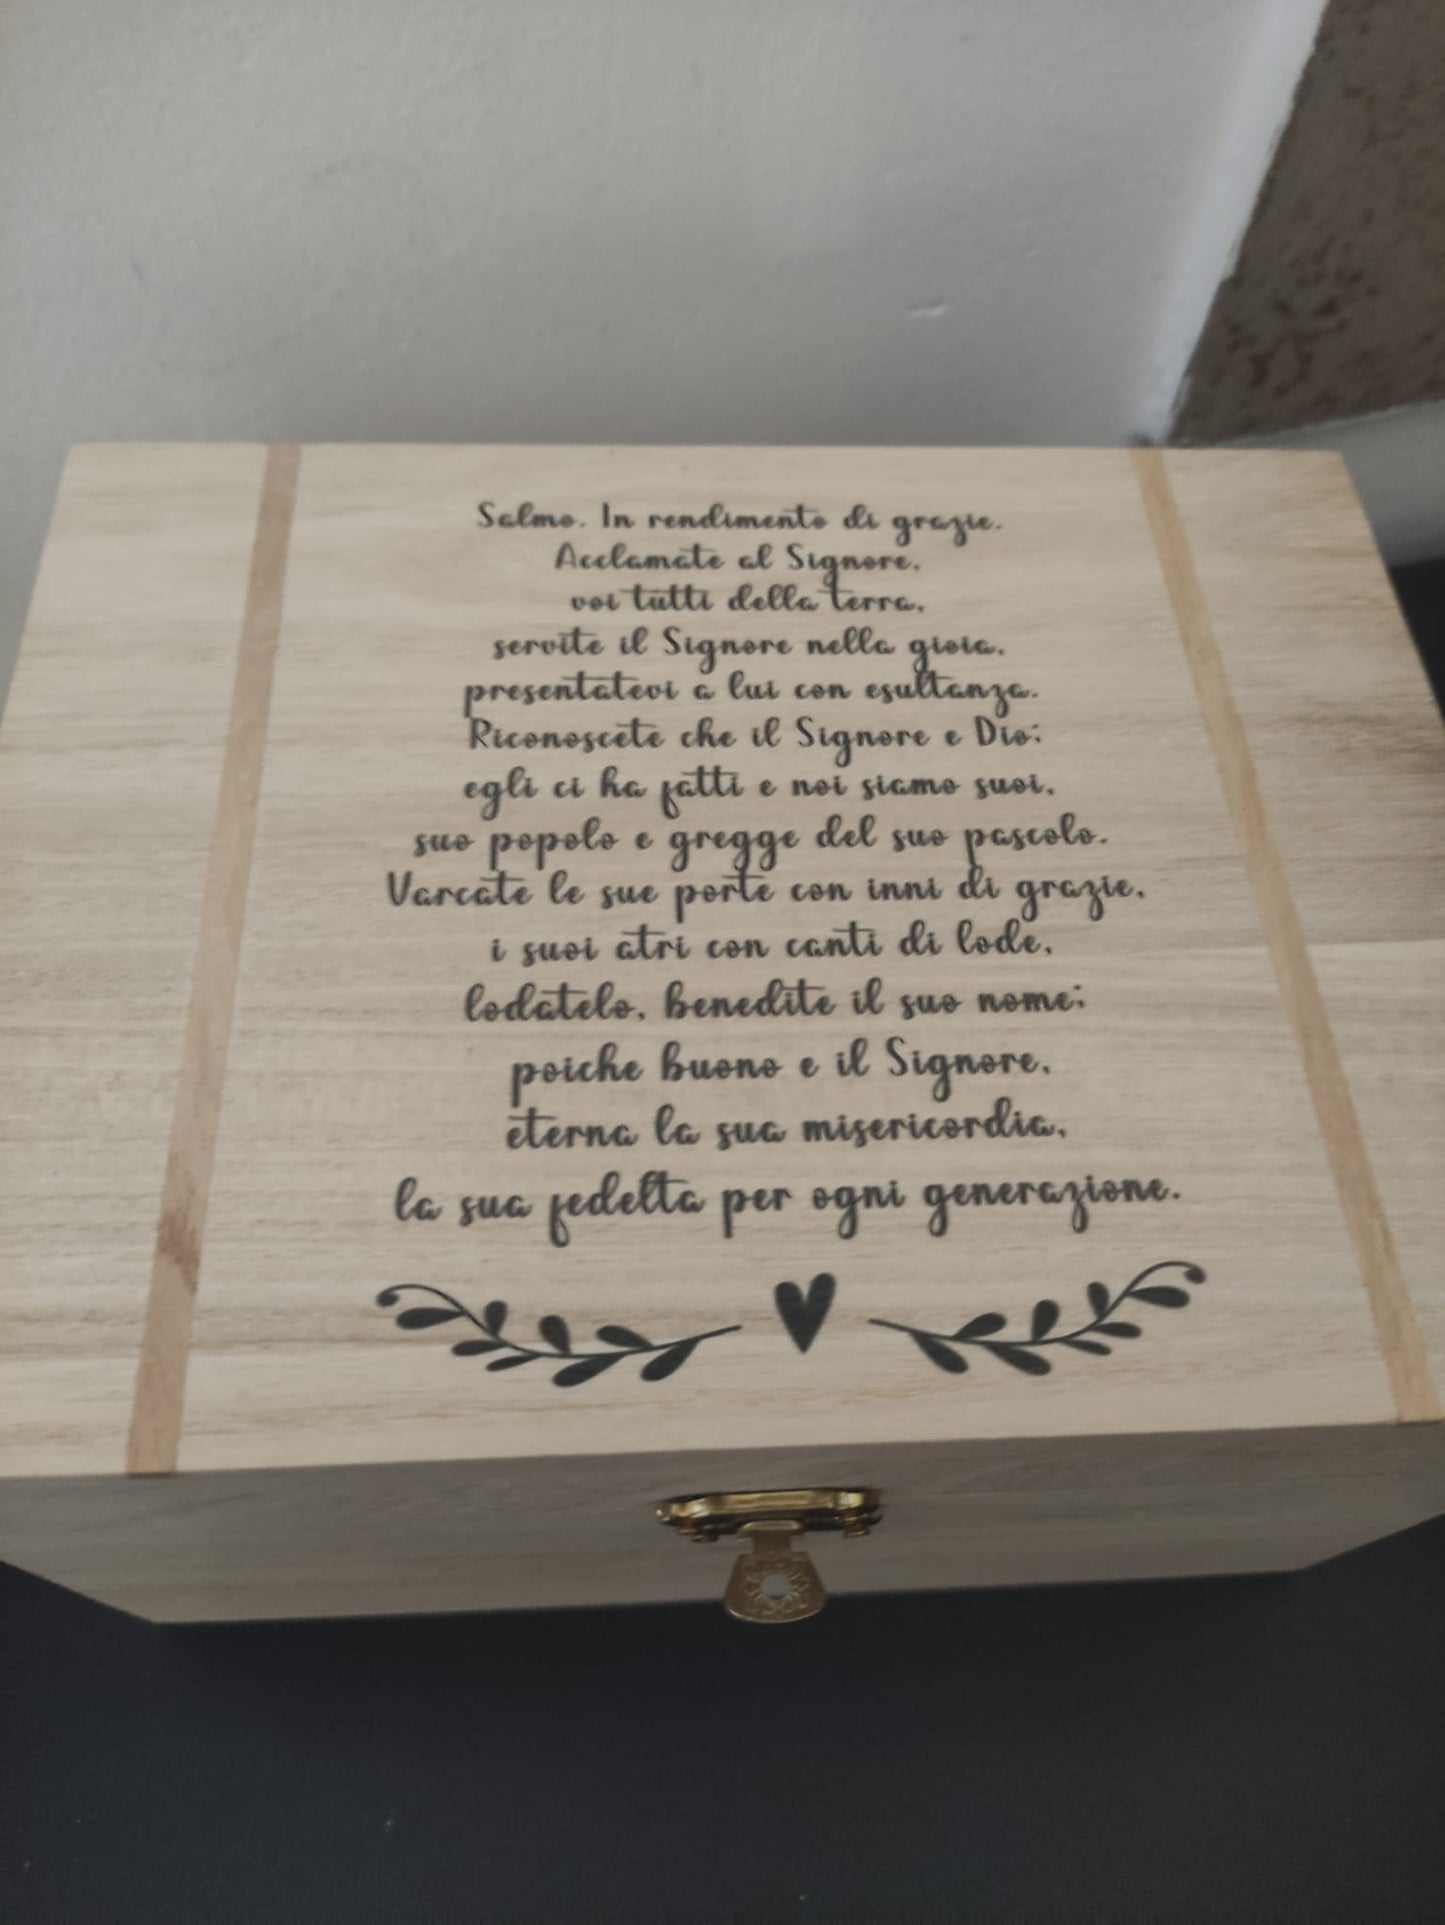 Salmo. In rendimento di grazie.
Acclamate al Signore,
voi tutti della terra,
servite il Signore nella gioia,
presentatevi a lui con esultanza.
Riconoscete che il Signore e Dio;
egli ci ha fatti e noi siamo suoi,
suo popolo e gregge del suo pascolo.
Varcate le sue porte con inni di grazie,
i suoi atri con canti di lode,
lodatelo, benedite il suo nome;
poiche buono e il Signore,
eterna la sua misericordia,
la sua fedelta per ogni generazione.